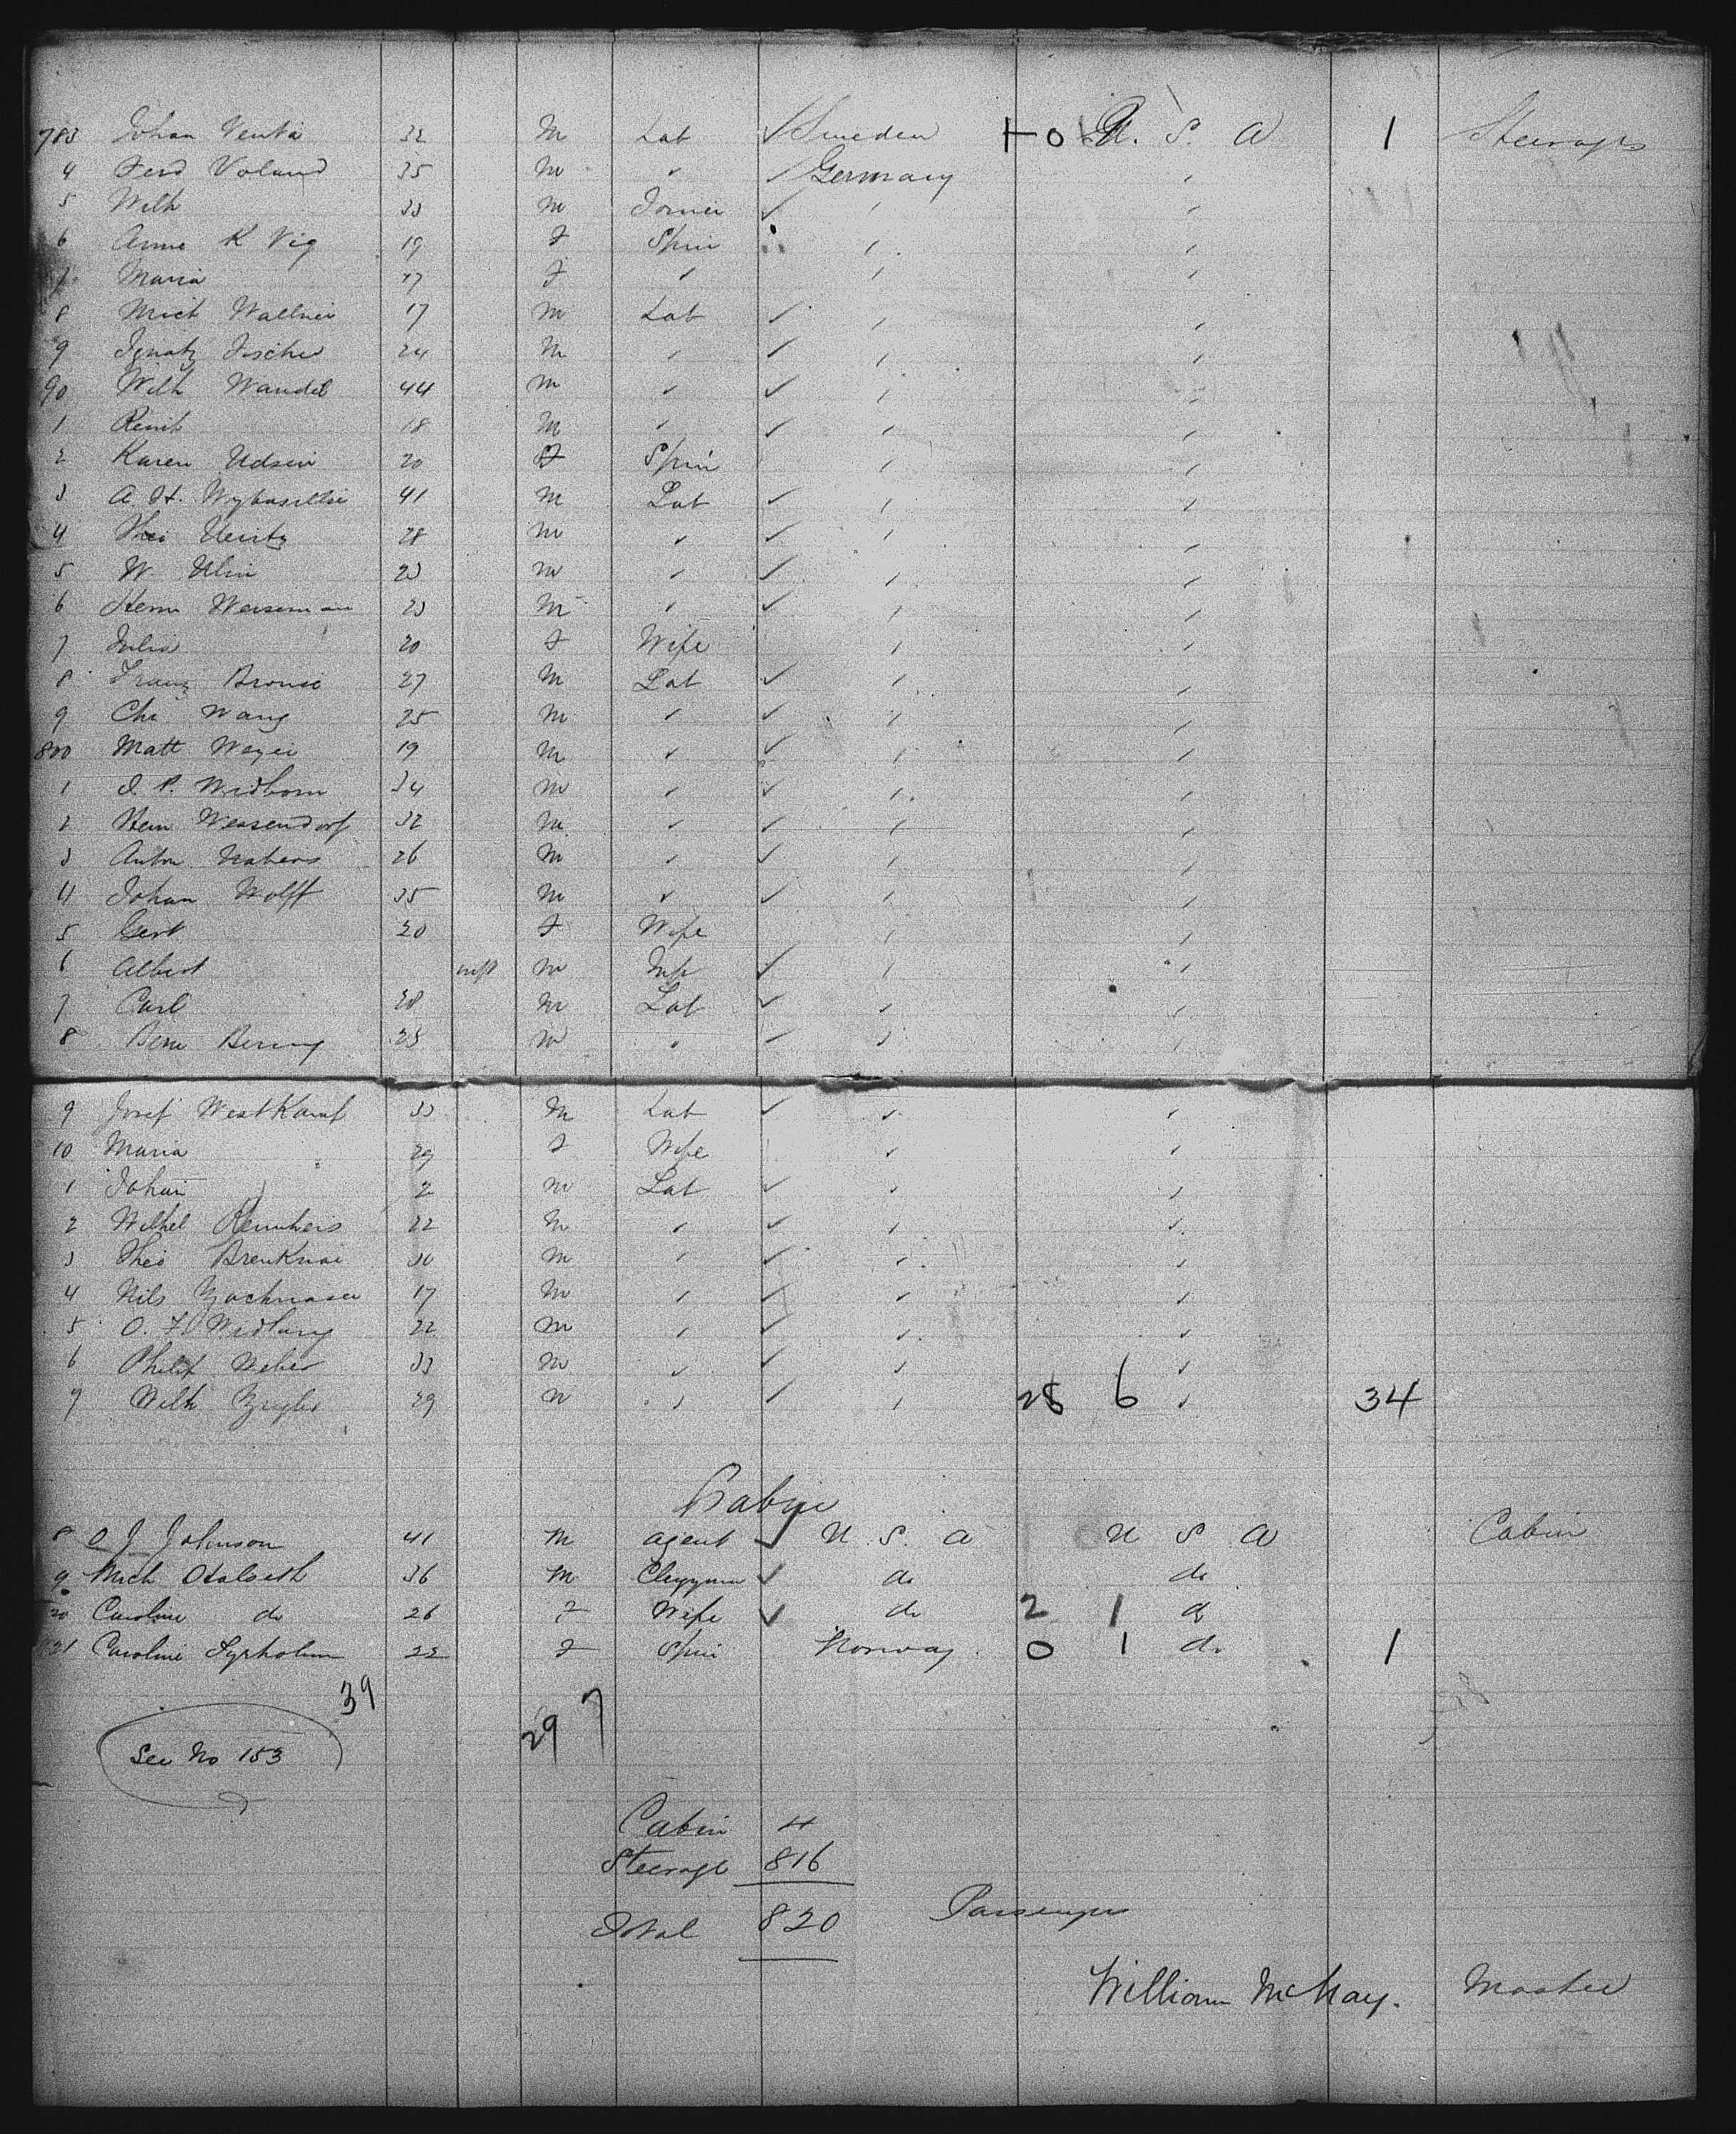 783 Johan Venta 32 M Lab ✓ Sweden 1 0 U. S. A 1 Steerage
4 Ferd Voland 35 M " ✓ Germany "
5 Wilh 33 M ✓ " "
6 Anna K Vig 19 F Spin " "
7 Maria 27 F " " "
8 Mich Wallner 17 M Lab ✓ " "
9 Ignatz Fischer 24 M " ✓ " "
90 Wilh Wandel 44 M " ✓ " "
1 18 M " ✓ " "
2 Karen Udsen 20 F Spin " "
3 A. H. 41 M Lab ✓ " "
4 Theo 28 M " ✓ " "
5 W. Ulin 23 M " ✓ " "
6 Herm Weiseman 23 M " ✓ " "
7 Julia 20 F Wife " "
8 Franz 27 M Lab ✓ " "
9 Chr Wang 25 M " ✓ " "
800 Matt Weyer 19 M " ✓ " "
1 J. P. Widbom 34 M " ✓ " "
2 Hein Wessendorf 32 M " ✓ " "
3 Anton 26 M " ✓ " "
4 Johan Wolff 35 M " ✓ " "
5 Gert 20 F Wife " "
6 Albert inft M Inft ✓ " "
7 Carl 28 M Lab ✓ " "
8 M " ✓ " "
9 Josef WestKamp 33 M Lab ✓ " "
10 Maria 29 F Wife " "
1 Johan 2 M Lab ✓ " "
2 Wilhel 22 M " ✓ " "
3 Theo 30 M " ✓ " "
4 Nils 17 M " ✓ " "
5 O. F. 22 M " ✓ " "
6 Philip Weber 33 M " ✓ " "
7 Wilh 29 M " ✓ " 28 6 " 34
Cabin
8 O J Johnson 41 M Agent ✓ U. S. A U S A Cabin
9 Mich 36 M Clergyman ✓ do do
20 Caroline do 26 F Wife ✓ do 2 1 do
21 Caroline 22 F Spin Norway 0 1 do 1
39
29 7
See No 153
Cabin 4
Steerage 816
Total 820 Passengers
William McKay. Master